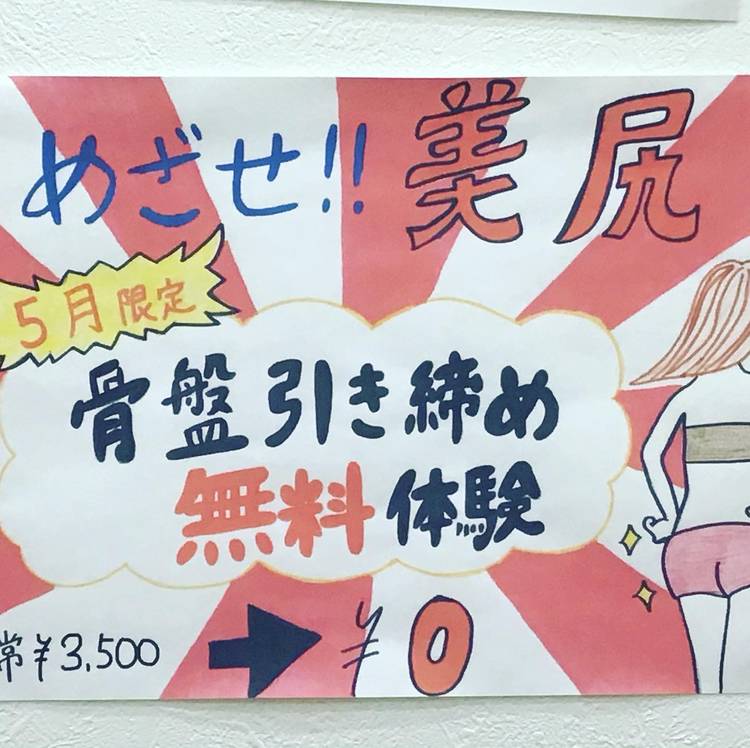 めざせ!!美尻
5月限定
骨盤引き締め
無料体験
常¥3,500 → ¥0